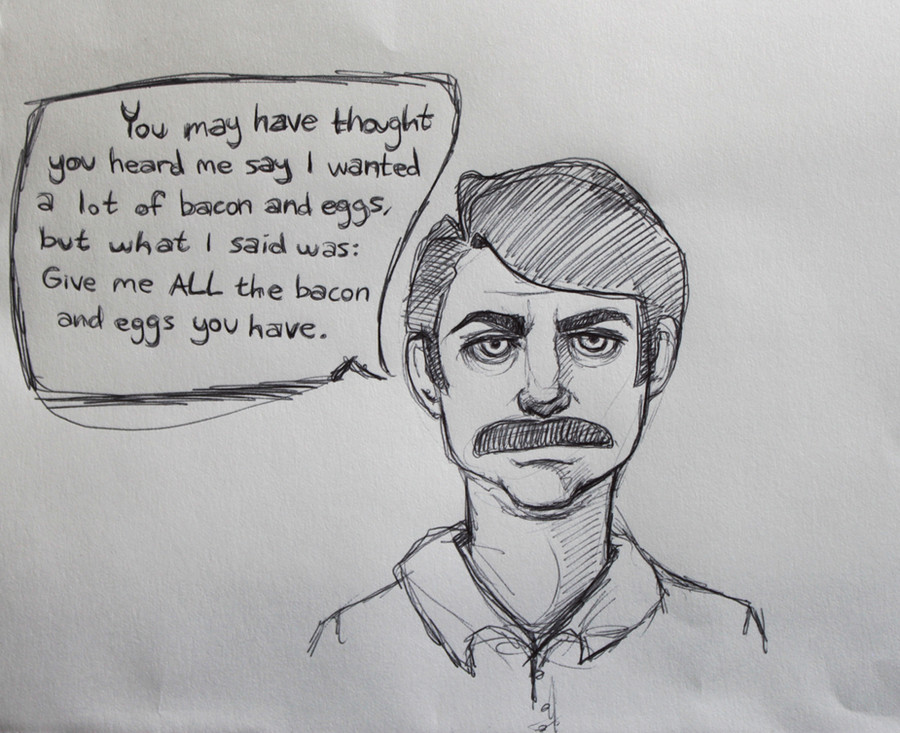 You may have thought
you heard me say I wanted
a lot of bacon and eggs,
but what I said was:
Give me ALL the bacon
and eggs you have.